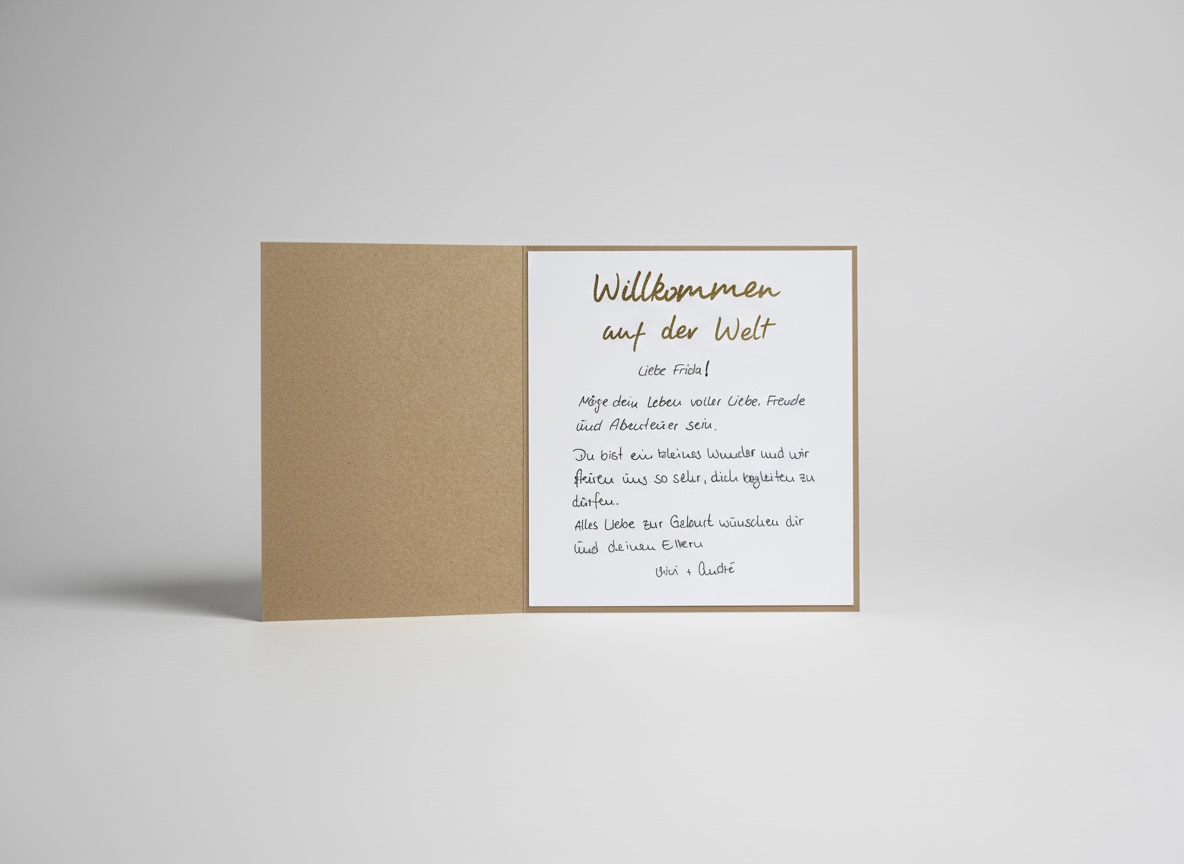 Willkommen
auf der Welt
Liebe Frida!
Möge dein Leben voller Liebe, Freude
und Abenteuer sein.
Du bist ein kleines Wunder und wir
freuen uns so sehr, dich begleiten zu
dürfen.
Alles Liebe zur Geburt wünschen dir
und deinen Eltern
+ André